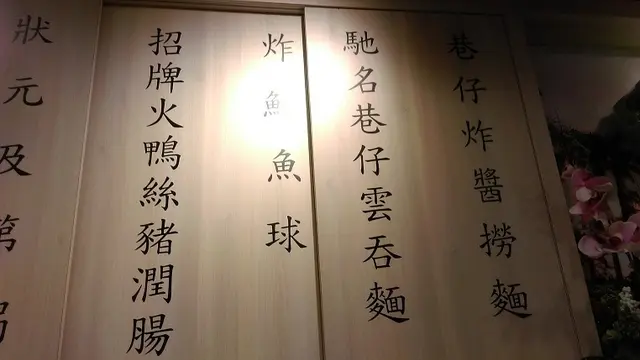 巷仔炸醬撈麵
馳名巷仔雲吞麵
炸魚球
招牌火鴨絲豬潤腸
狀元及第